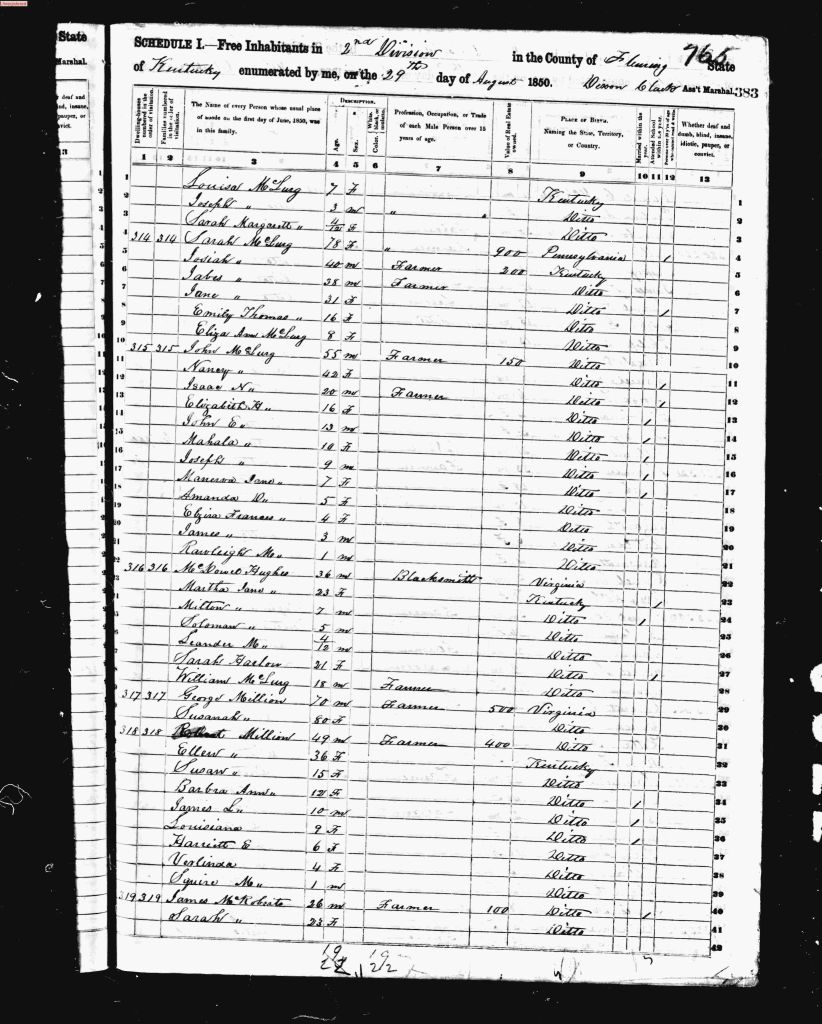 State
Marshal.
765
SCHEDULE I.—Free Inhabitants in 2nd Division in the County of Fleming State
of Kentucky enumerated by me, on the 29th day of August 1850. Dixon Clark Ass't Marshal. 383
Dwelling-houses numbered in the order of visitation.
Families numbered in the order of visitation.
The Name of every Person whose usual place of abode on the first day of June, 1850, was in this family.
DESCRIPTION.
Age.
Sex.
Color, White, black, or mulatto.
Profession, Occupation, or Trade of each Male Person over 15 years of age.
Value of Real Estate owned.
PLACE OF BIRTH. Naming the State, Territory, or Country.
Married within the year.
Attended School within the year.
Whether deaf and dumb, blind, insane, idiotic, pauper, or convict.
1 2 3 4 5 6 7 8 9 10 11 12 13
1 Louisa McLurg 7 F Kentucky 1
2 Joseph " 3 m " Ditto 2
3 Sarah Margarett " 4/12 F Ditto 3
4 314 314 Sarah McLurg 78 F " 900 Pennsylvania / 4
5 Josiah " 40 m Farmer 200 Kentucky 5
6 Jabes " 38 m Farmer Ditto 6
7 Jane " 31 F Ditto / 7
8 Emily Thomas " 16 F Ditto 8
9 Eliza Ann McLurg 8 F Ditto 9
10 315 315 John McLurg 55 m Farmer 150 Ditto 10
11 Nancy " 42 F Ditto / 11
12 Isaac N " 20 m Farmer Ditto / 12
13 Elizabeth H " 16 F Ditto / 13
14 John E " 13 m Ditto / 14
15 Mahala " 10 F Ditto / 15
16 Joseph " 9 m Ditto / 16
17 Manerva Jane " 7 F Ditto / 17
18 Amanda D " 5 F Ditto 18
19 Elzira Frances " 4 F Ditto 19
20 James " 3 m Ditto 20
21 Rawleigh M " 1 m Ditto 21
22 316 316 McDowel Hughes 36 m Blacksmith Virginia 22
23 Martha Jane " 23 F Kentucky / 23
24 Milton " 7 m Ditto / 24
25 Soloman " 5 m Ditto 25
26 Leander M " 4/12 m Ditto 26
27 Sarah Harlow 21 F Ditto / 27
28 William McLurg 18 m Farmer Ditto 28
29 317 317 George Million 70 m Farmer 500 Virginia 29
30 Susanah " 80 F Ditto 30
31 318 318 Million 49 m Farmer 400 Ditto 31
32 Ellen " 36 F Kentucky 32
33 Susan " 15 F Ditto 33
34 Barbra Ann " 12 F Ditto / 34
35 James L " 10 m Ditto / 35
36 Louisiana 9 F Ditto / 36
37 Harriett E 6 F Ditto 37
38 Verlinda 4 F Ditto 38
39 Squire M " 1 m Ditto 39
40 319 319 James McRoberts 26 m Farmer 100 Ditto / 40
41 Sarah " 23 F Ditto 41
42
19 19
22 22